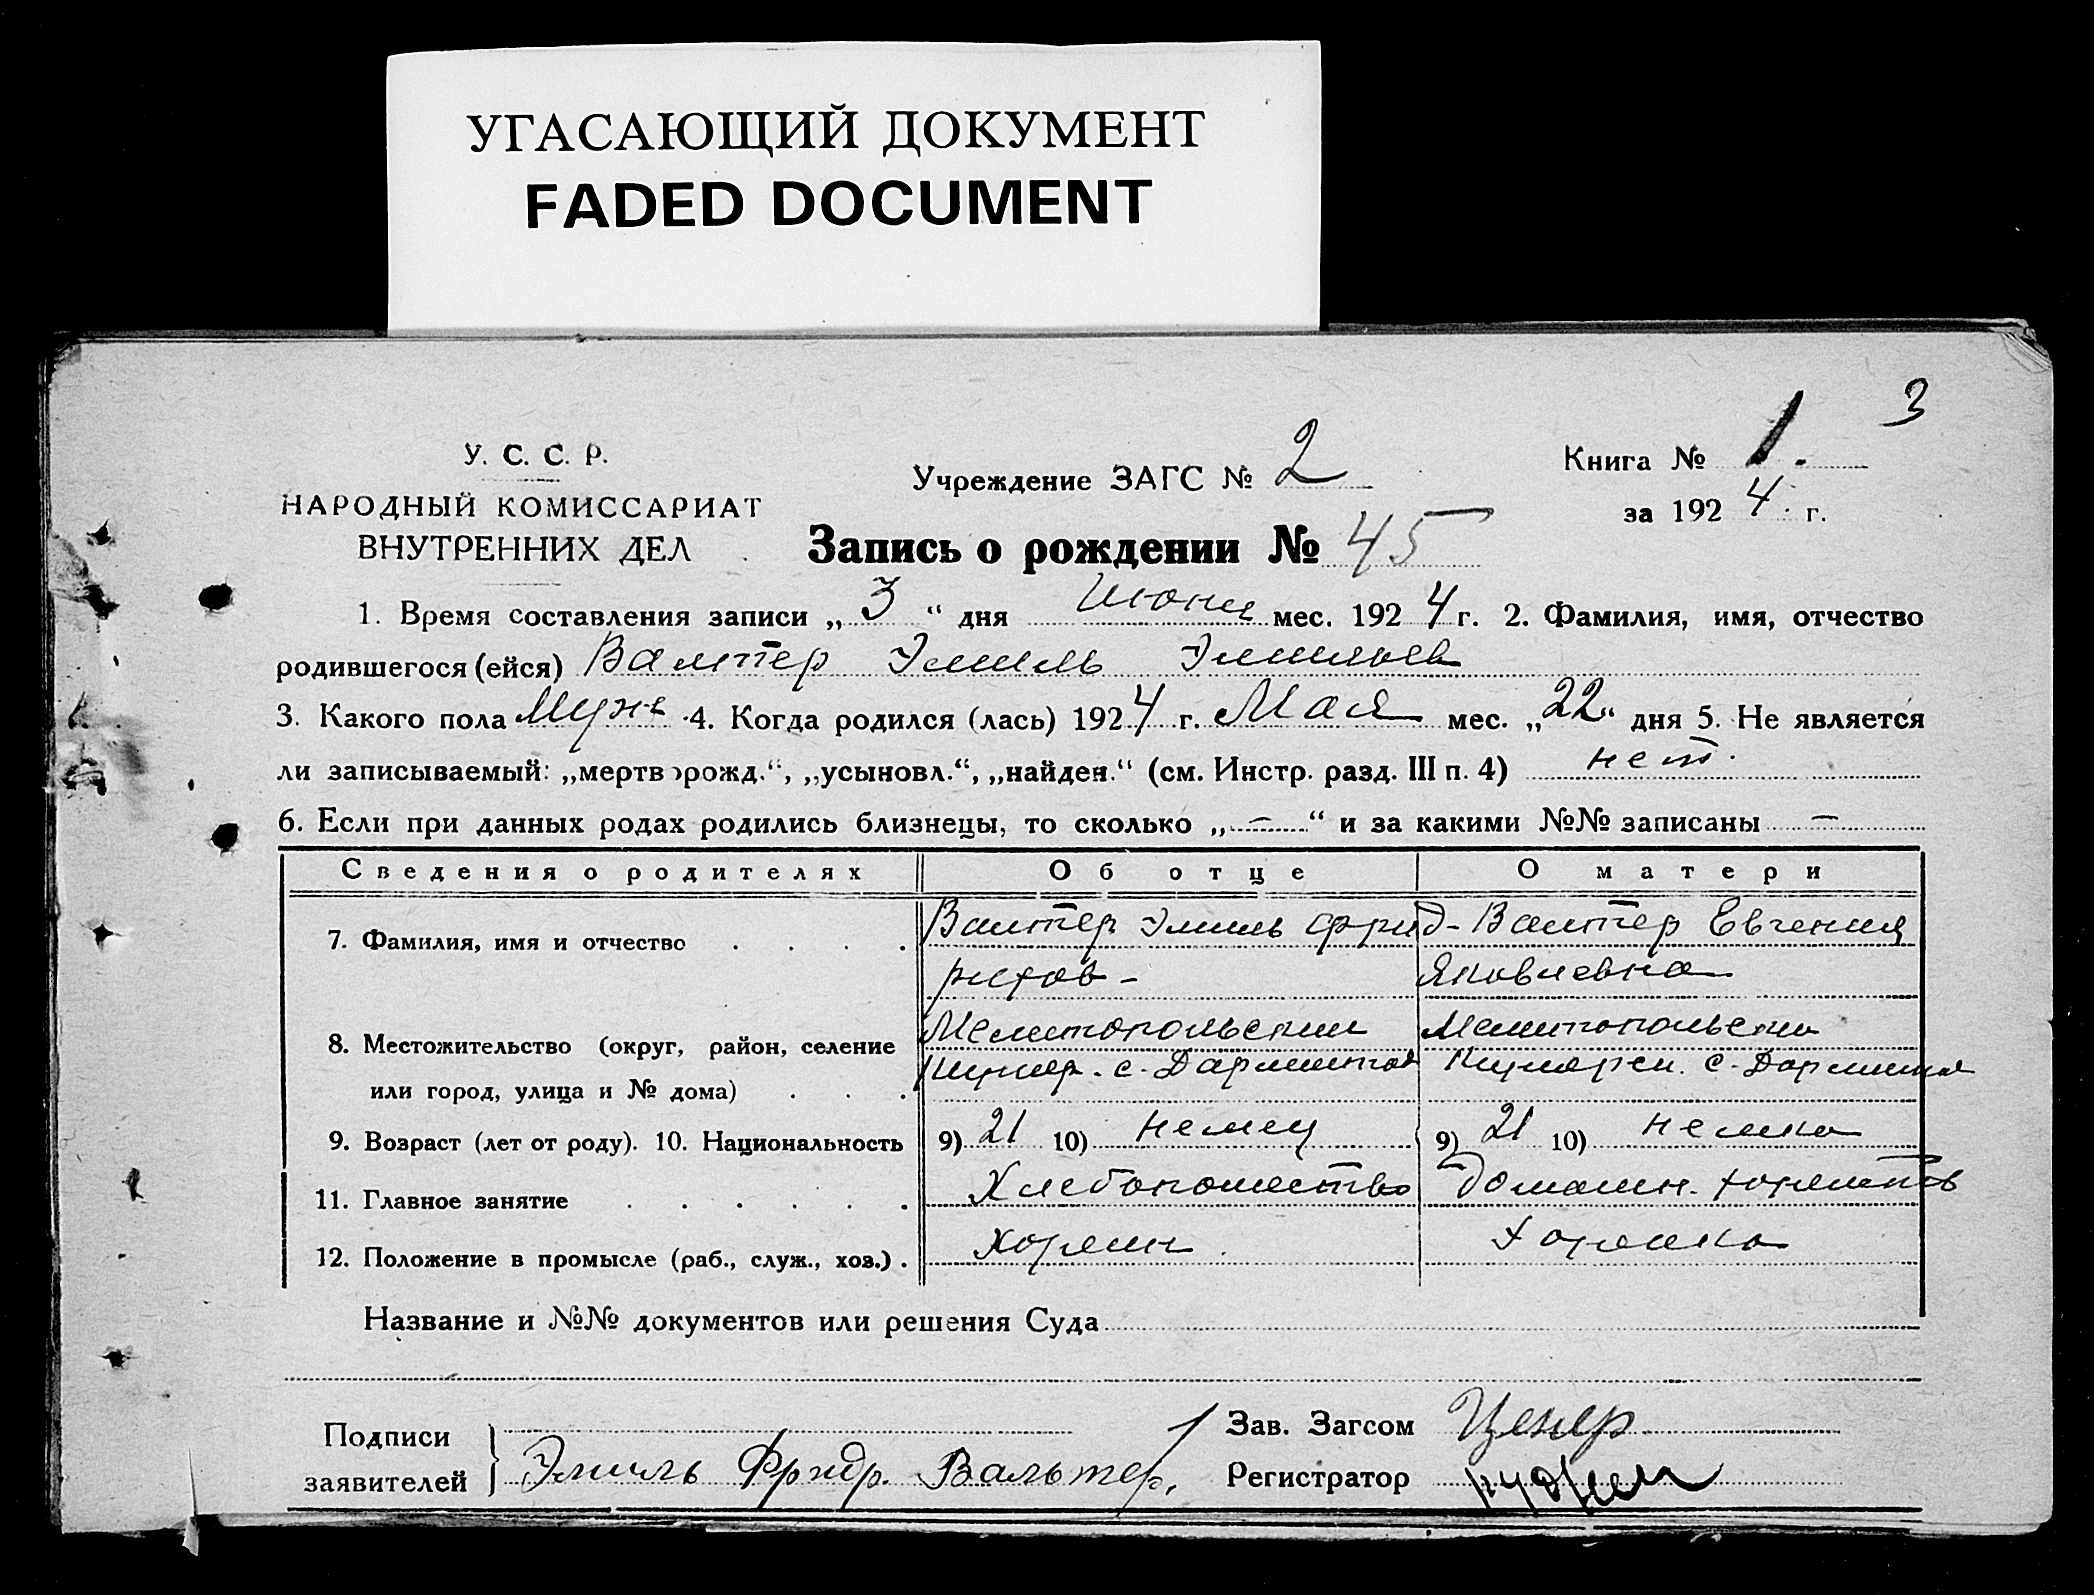 УГАСАЮЩИЙ ДОКУМЕНТ
FADED DOCUMENT
3
У. С. С. Р.
НАРОДНЫЙ КОМИССАРИАТ
ВНУТРЕННИХ ДЕЛ
Учреждение ЗАГС № 2
Книга № 1.
за 1924 г.
Запись о рождении № 45
1. Время составления записи „3“ дня Июня мес. 1924 г. 2. Фамилия, имя, отчество
родившегося (ейся) Валтер Эмиль Эмильев
3. Какого пола Муж. 4. Когда родился (лась) 1924 г. Мая мес. „22“ дня 5. Не является
ли записываемый: „мертворожд.“, „усыновл.“, „найден.“ (см. Инстр. разд. III п. 4) нет.
6. Если при данных родах родились близнецы, то сколько „—“ и за какими №№ записаны —
Сведения о родителях Об отце О матери
7. Фамилия, имя и отчество Валтер Эмиль Фрид- Валтер Евгения
рихов- Яковлевна
8. Местожительство (округ, район, селение Мелитопольский Мелитопольски
или город, улица и № дома) с. Дармштат с.
9. Возраст (лет от роду). 10. Национальность 9) 21 10) немец 9) 21 10) немка
11. Главное занятие Хлебопашество Домашн.
12. Положение в промысле (раб., служ., хоз.).
Название и №№ документов или решения Суда
Подписи
заявителей Эмиль Фридр. Вальтер.
Зав. Загсом
Регистратор